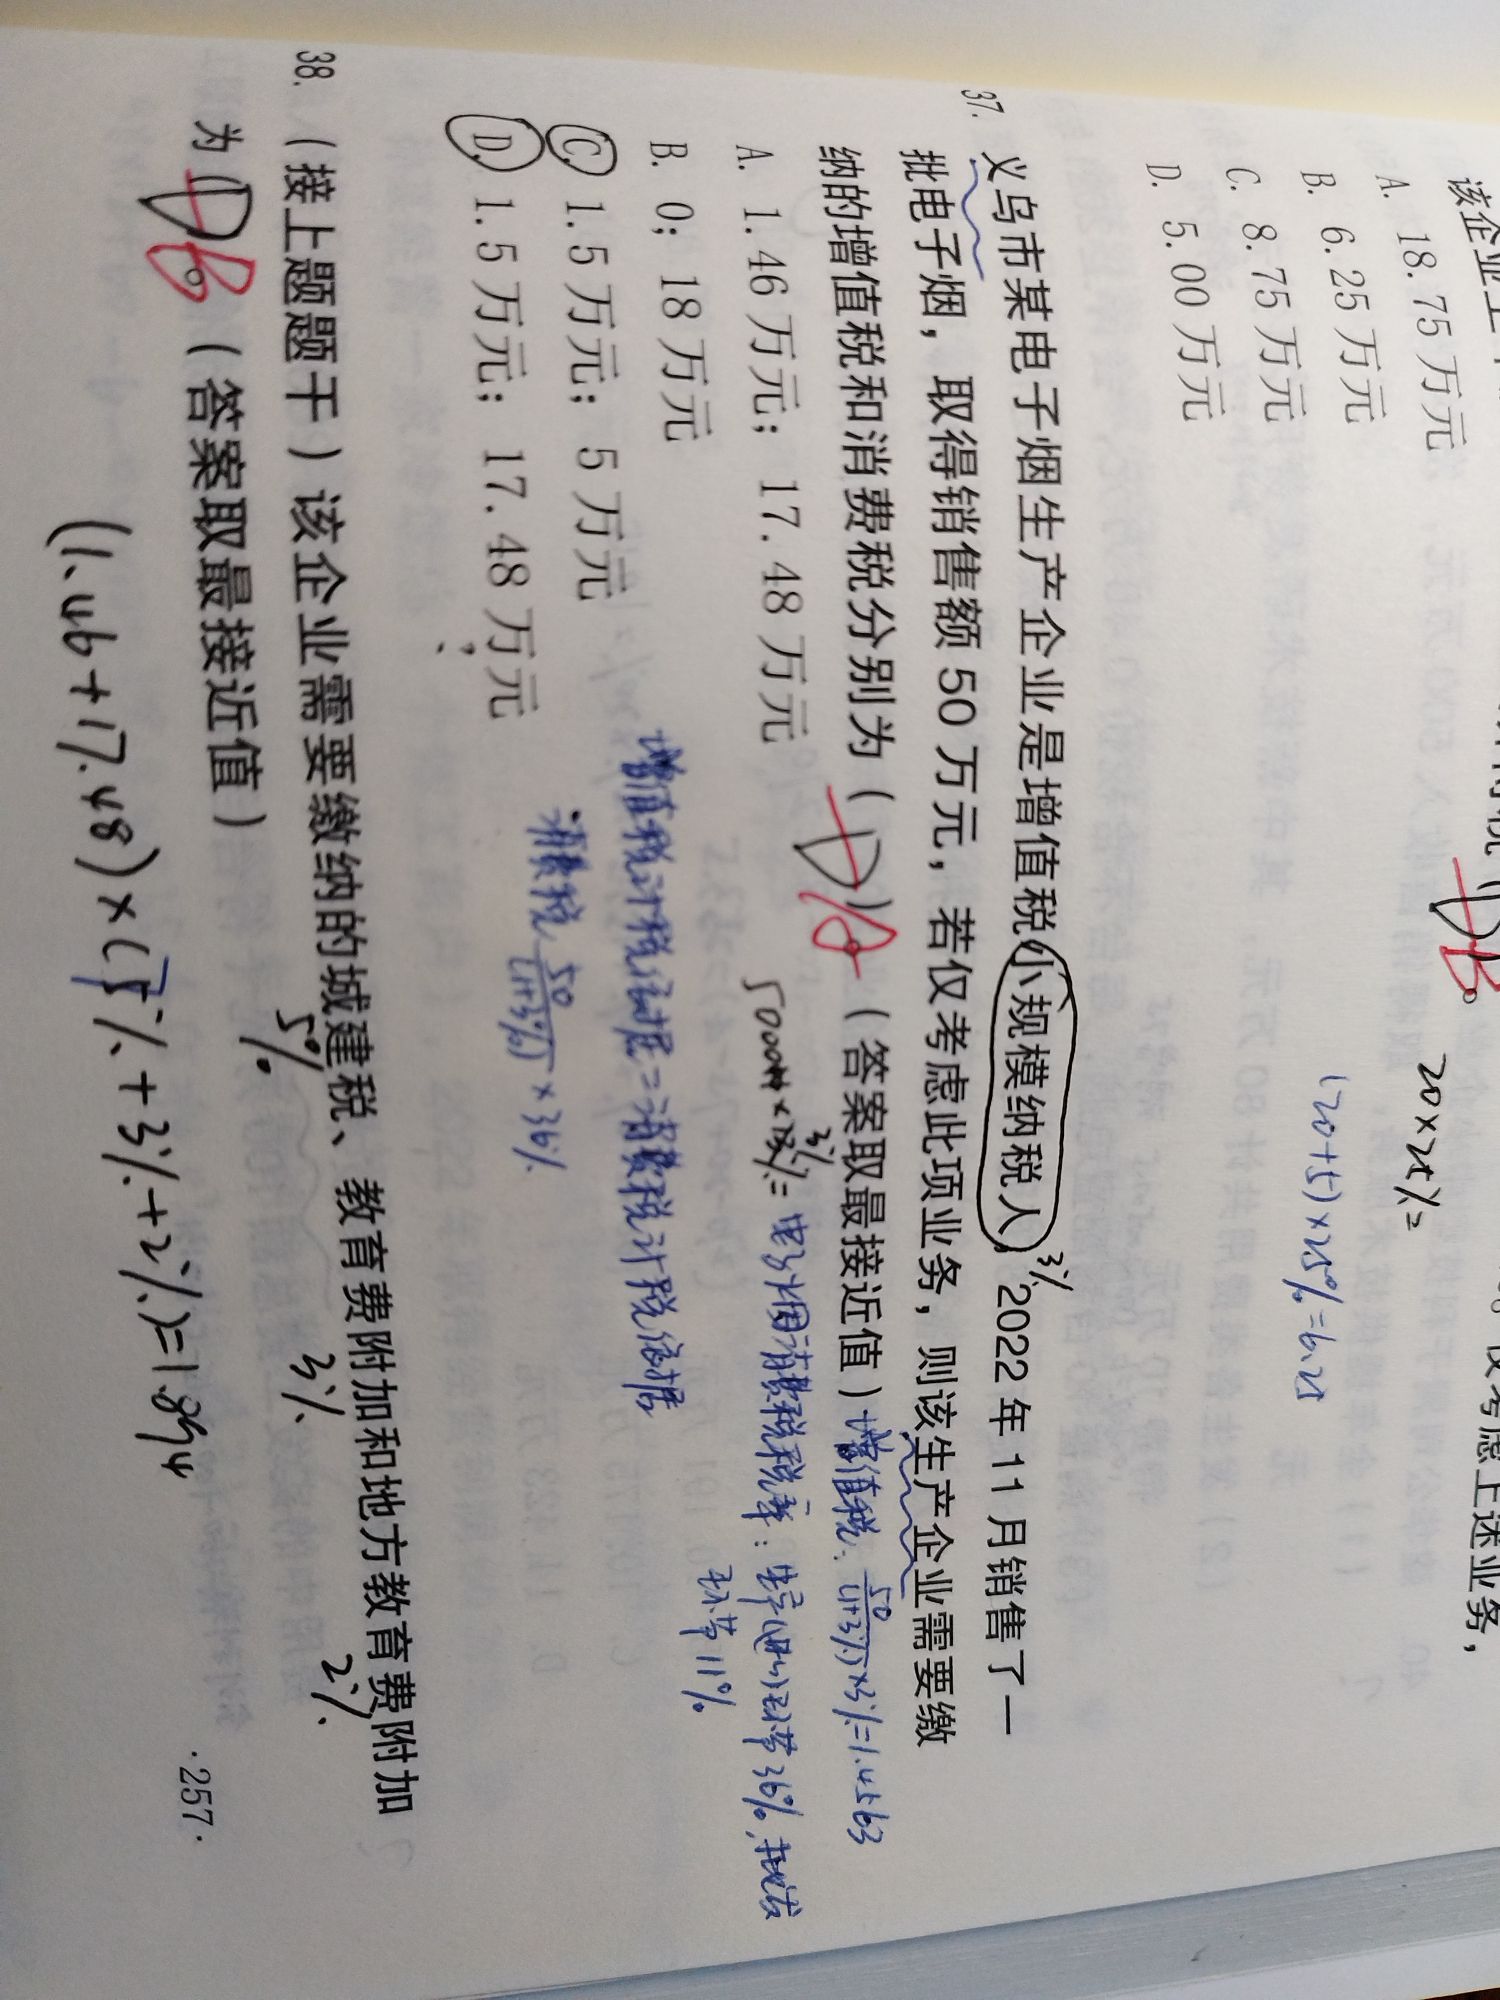 该企业
A. 18.75万元
B. 6.25万元
C. 8.75万元
D. 5.00万元
D B
仅考虑上述业务，
20×25%=
(20+5)×25%=6.25
37. 义乌市某电子烟生产企业是增值税小规模纳税人，2022年11月销售了一
3%
批电子烟，取得销售额50万元，若仅考虑此项业务，则该生产企业需要缴
纳的增值税和消费税分别为（ D ）。（答案取最接近值）
增值税：50/(1+3%)×3%=1.4563
A. 1.46万元；17.48万元
3%
电子烟消费税税率：生产(进口)环节36%，批发
环节11%
B. 0；18万元
增值税计税依据=消费税计税依据
C. 1.5万元；5万元
消费税 50/(1+3%)×36%
D. 1.5万元；17.48万元
38. （接上题题干）该企业需要缴纳的城建税、教育费附加和地方教育费附加
5% 3% 2%
为（ D B 。（答案取最接近值）
(1.46+17.48)×(5%+3%+2%)=1.894
·257·